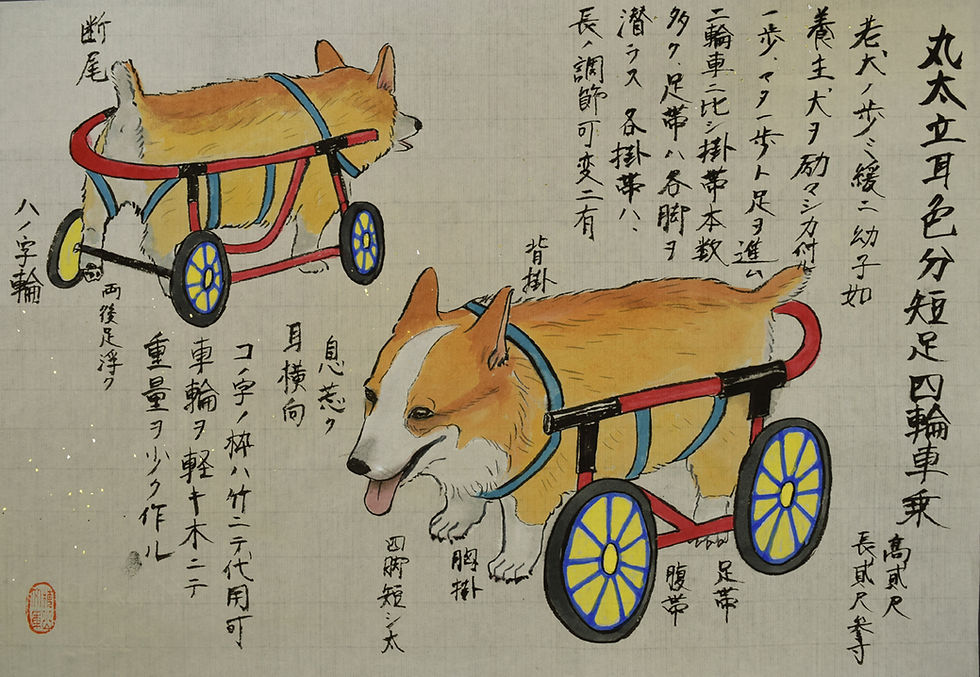 丸太立耳色分短足四輪車乗
高貳尺
長貳尺參寸
老犬ノ歩ミ緩ニ幼子如
養主犬ヲ励マシ力付ケ
一歩、マタ一歩ト足ヲ進ム
二輪車ニ比シ掛帯本数
多ク、足帯ハ各脚ヲ
潜ラス 各掛帯ハ、
長ノ調節可変ニ有
背掛
断尾
ハノ字輪
両後足浮ク
息荒ク
耳横向
コノ字ノ枠ハ竹ニテ代用可
車輪ヲ軽キ木ニテ
重量ヲ少ク作ル
足帯
腹帯
脚掛
四脚短シ太